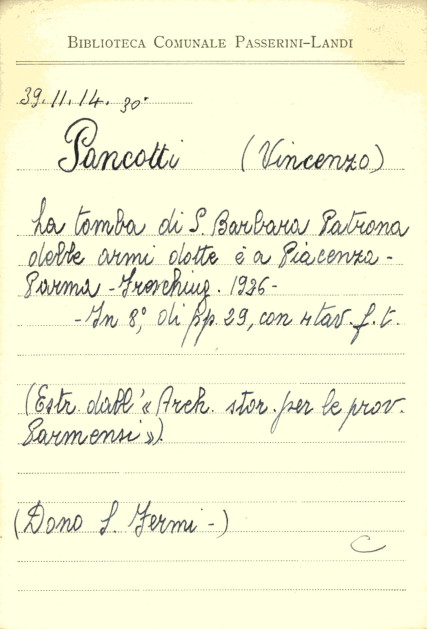 BIBLIOTECA COMUNALE PASSERINI-LANDI
39.11.14. 30.
Pancotti (Vincenzo)
La tomba di S. Barbara Patrona
delle armi dotte è a Piacenza -
Parma - Freschig. 1936 -
- In 8°, di pp. 29, con 4 tav. f. t.
(Estr. dall'« Arch. stor. per le prov.
Parmensi »).
(Dono S. Fermi -)
C